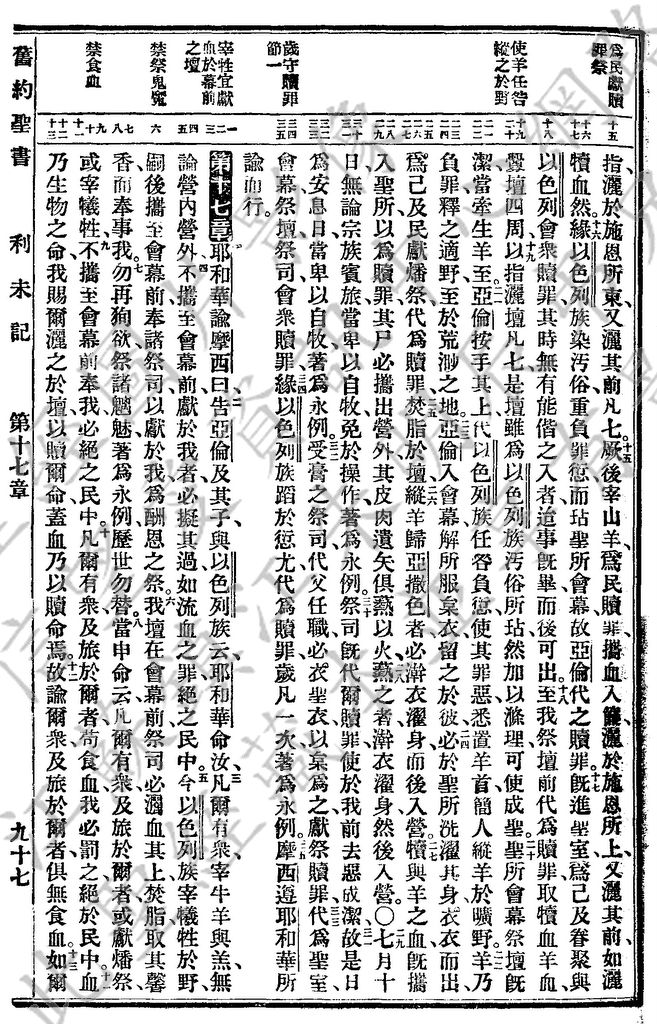 為民獻贖
罪祭
使羊任咎
縱之於野
歲守贖罪
節一
宰牲宜獻
血於幕前
之壇
禁祭鬼魔
禁食血
指灑於施恩所東、又灑其前凡七。厥後宰山羊、為民贖罪、攜血入簾、灑於施恩所上、又灑其前、如灑
犢血然。緣以色列族染汚俗、重負罪愆、而玷聖所會幕、故亞倫代之贖罪。旣進聖室、為己及眷聚與
以色列會衆贖罪、其時無有能偕之入者、迨事旣畢、而後可出。至我祭壇前、代為贖罪、取犢血羊血、
釁壇四周、以指灑壇凡七、是壇雖為以色列族汚俗所玷、然加以滌理、可使成聖。聖所會幕祭壇旣
潔、當牽生羊至。亞倫按手其上、代以色列族任咎負愆、使其罪惡、悉置羊首、簡人縱羊於曠野。羊乃
負罪、釋之適野、至於荒渺之地。亞倫入會幕、解所服枲衣、留之於彼。必於聖所洗濯其身、衣衣而出、
為己及民獻燔祭、代為贖罪。焚脂於壇。縱羊歸亞撒色者、必澣衣濯身、而後入營。犢與羊之血、旣攜
入聖所、以為贖罪、其尸必攜出營外、其皮肉遺矢、俱爇以火。爇之者、澣衣濯身、然後入營。〇七月十
日、無論宗族賓旅、當卑以自牧、免於操作、著為永例。祭司旣代爾贖罪、使於我前去惡成潔。故是日
為安息日、當卑以自牧、著為永例。受膏之祭司、代父任職、必衣聖衣、以枲為之、獻祭贖罪。代為聖室
會幕祭壇祭司會衆贖罪。緣以色列族蹈於愆尤、代為贖罪、歲凡一次、著為永例。摩西遵耶和華所
諭而行。
第十七章 耶和華諭摩西曰、告亞倫及其子、與以色列族云、耶和華命汝、凡爾有衆、宰牛羊與羔、無
論營內營外、不攜至會幕前、獻於我者、必擬其過、如流血之罪、絕之民中。今以色列族宰犧牲於野、
嗣後攜至會幕前、奉諸祭司、以獻於我、為酬恩之祭。我壇在會幕前、祭司必灑血其上、焚脂取其馨
香而奉事我。勿再狥欲、祭諸魑魅、著為永例、歷世勿替。當申命云、凡爾有衆、及旅於爾者、或獻燔祭、
或宰犧牲、不攜至會幕前奉我、必絕之民中。凡爾有衆、及旅於爾者、苟食血、我必罰之、絕於民中。血
乃生物之命、我賜爾灑之於壇、以贖爾命、蓋血乃以贖命焉。故諭爾衆、及旅於爾者、俱無食血。如爾
舊約聖書 利未記 第十七章 九十七